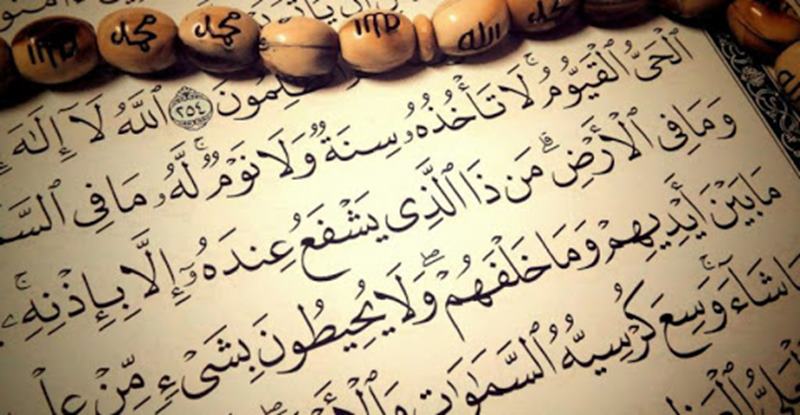 محمد محمد الله
ٱللَّهُ لَآ إِلَٰهَ ٢٥٤
ٱلْحَىُّ ٱلْقَيُّومُ ۚ لَا تَأْخُذُهُۥ سِنَةٌ وَلَا نَوْمٌ ۚ لَّهُۥ مَا فِى
وَمَا فِى ٱلْأَرْضِ ۗ مَن ذَا ٱلَّذِى يَشْفَعُ عِندَهُۥٓ إِلَّا بِإِذْنِهِۦ ۚ
مَا بَيْنَ أَيْدِيهِمْ وَمَا خَلْفَهُمْ ۖ وَلَا يُحِيطُونَ بِشَىْءٍ مِّنْ
شَآءَ ۚ وَسِعَ كُرْسِيُّهُ ٱلسَّمَٰوَٰتِ